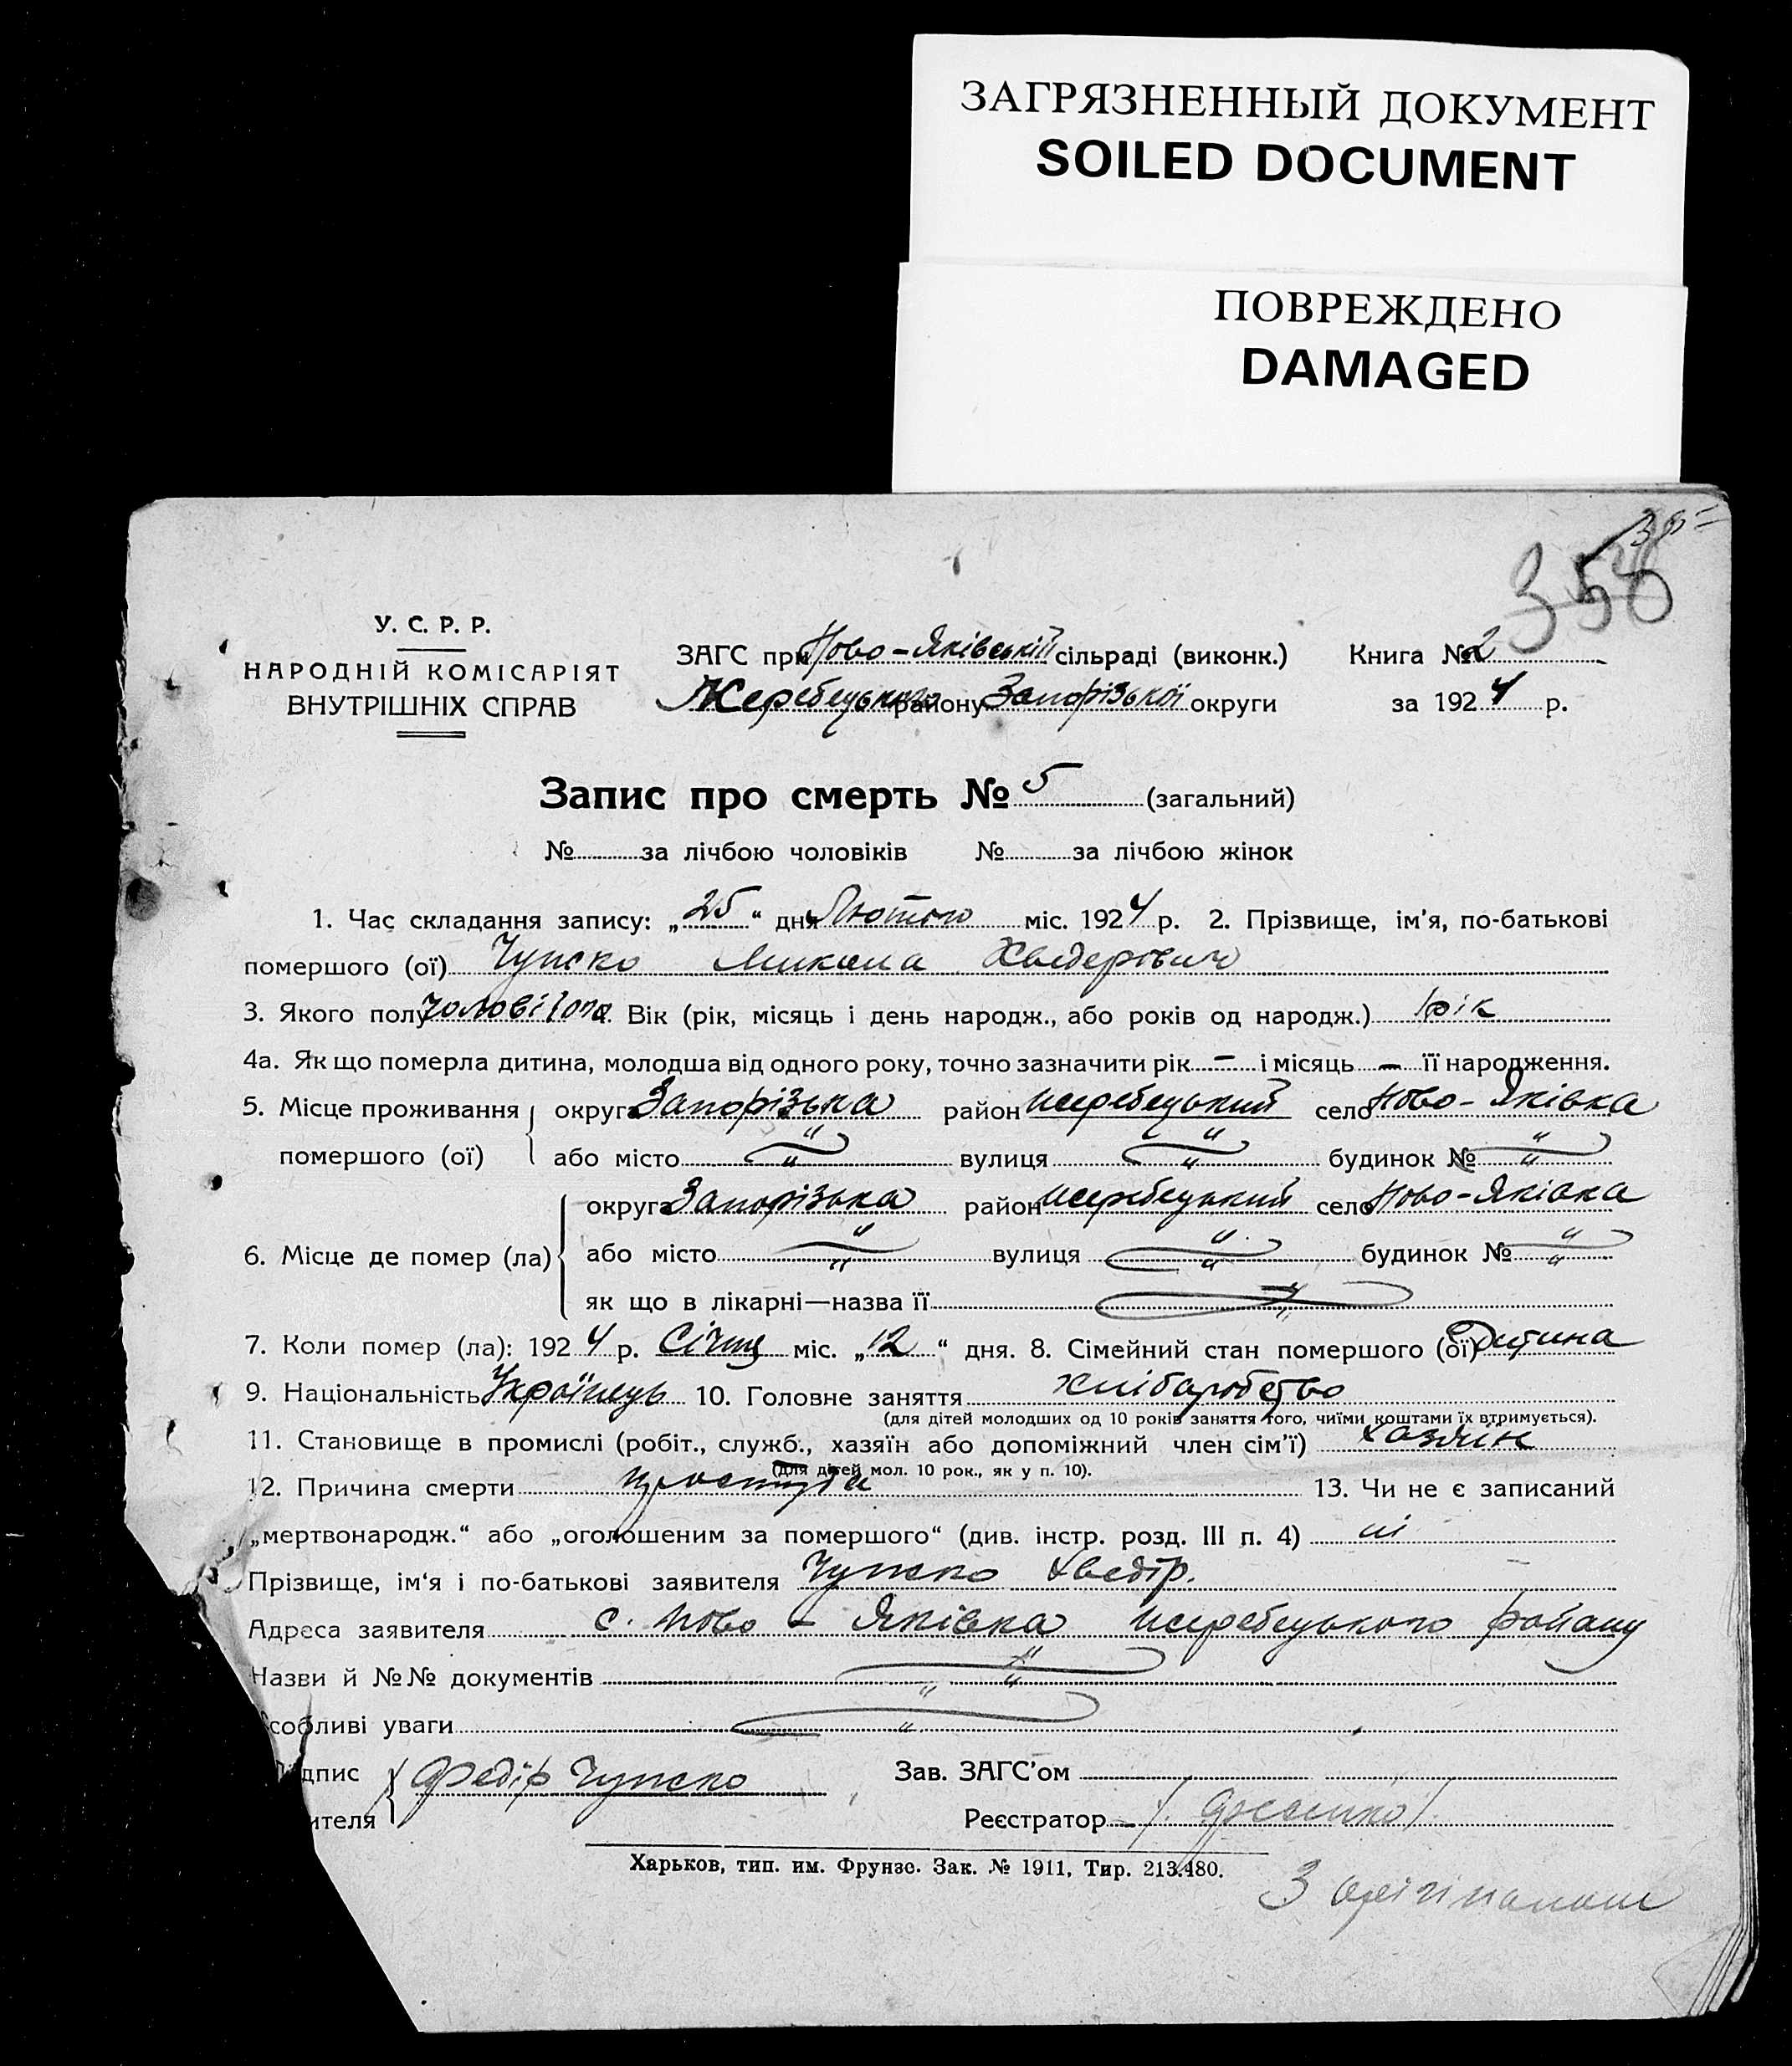 ЗАГРЯЗНЕННЫЙ ДОКУМЕНТ
SOILED DOCUMENT
ПОВРЕЖДЕНО
DAMAGED
358
У. С. Р. Р.
НАРОДНІЙ КОМІСАРІЯТ
ВНУТРІШНІХ СПРАВ
ЗАГС при Ново-Яківській сільраді (виконк.) Книга № 2
Жеребецького району Запорізької округи за 1924 р.
Запис про смерть № 5 (загальний)
№ за лічбою чоловіків № за лічбою жінок
1. Час складання запису: „25“ дня Лютого міс. 1924 р. 2. Прізвище, ім’я, по-батькові
помершого (ої) Микола Хведерович
3. Якого полу 4. Вік (рік, місяць і день народж., або років од народж.) 1 рік
4а. Як що померла дитина, молодша від одного року, точно зазначити рік – і місяць – її народження.
5. Місце проживання округа Запорізька район Жеребецький село Ново-Яківка
помершого (ої) або місто " вулиця " будинок № "
округа Запорізька район Жеребецький село Ново-Яківка
6. Місце де помер (ла) або місто " вулиця " будинок № "
як що в лікарні—назва її "
7. Коли помер (ла): 1924 р. Січня міс. „12“ дня. 8. Сімейний стан помершого (ої) Дитина
9. Національність Українець 10. Головне заняття хліборобство
(для дітей молодших од 10 років заняття того, чиїми коштами їх втримується).
11. Становище в промислі (робіт., служб., хазяїн або допоміжний член сім’ї) хазяїн
(для дітей мол. 10 рок., як у п. 10).
12. Причина смерти простуда 13. Чи не є записаний
„мертвонародж.“ або „оголошеним за помершого“ (див. інстр. розд. III п. 4) ні
Прізвище, ім‘я і по-батькові заявителя Хведір.
Адреса заявителя с. Ново-Яківка Жеребецького району
Назви й №№ документів "
собливі уваги "
дпис Федір
ителя
Зав. ЗАГС’ом
Реєстратор
Харьков, тип. им. Фрунзе. Зак. № 1911, Тир. 213.480.
З оригіналом